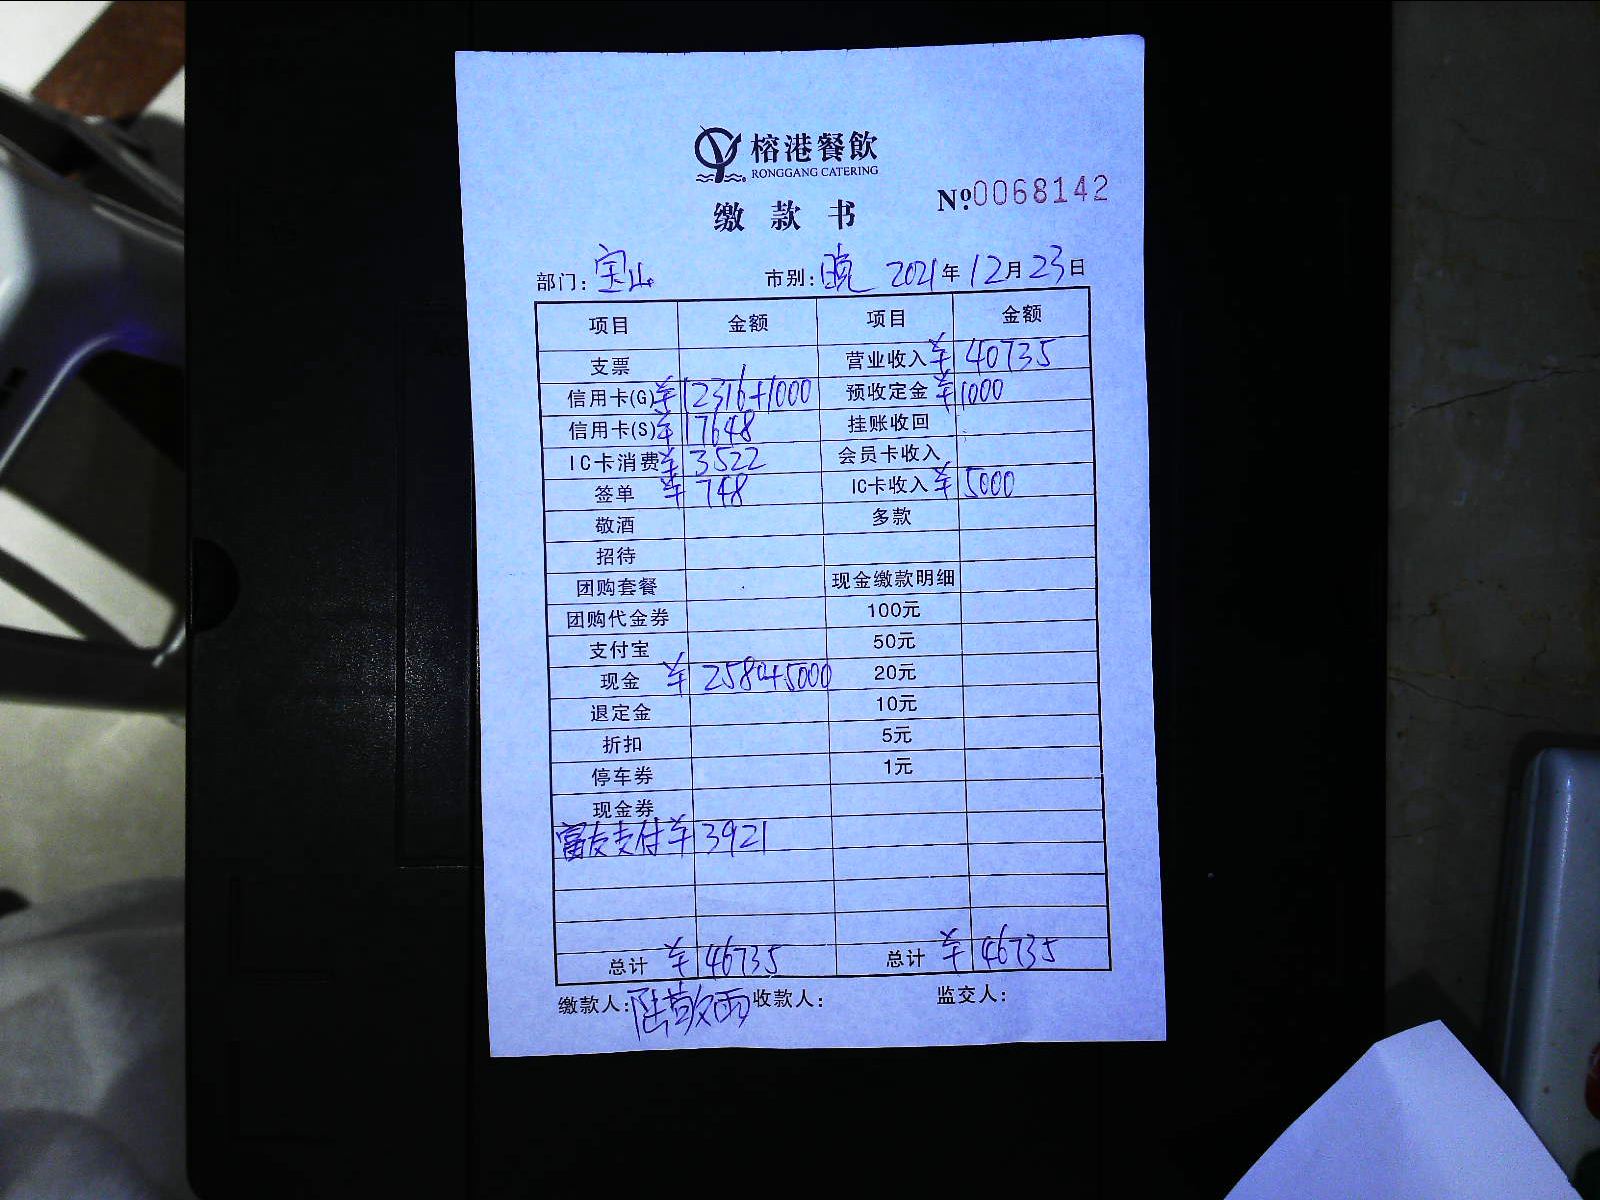 榕港餐飲
RONGGANG CATERING
缴款书 Nº:0068142
部门:宝山 市别:晚 2021年12月23日
项目 金额 项目 金额
支票 营业收入 ¥ 40735
信用卡(G) ¥ 12316+1000 预收定金 ¥ 1000
信用卡(S) ¥ 17648 挂账收回
IC卡消费 ¥ 3522 会员卡收入
签单 ¥ 748 IC卡收入 ¥ 5000
敬酒 多款
招待
团购套餐 现金缴款明细
团购代金券 100元
支付宝 50元
现金 ¥ 2580+5000 20元
退定金 10元
折扣 5元
停车券 1元
现金券
富友支付 ¥ 3921
总计 ¥ 46735 总计 ¥ 46735
缴款人:陆敬雨 收款人: 监交人: